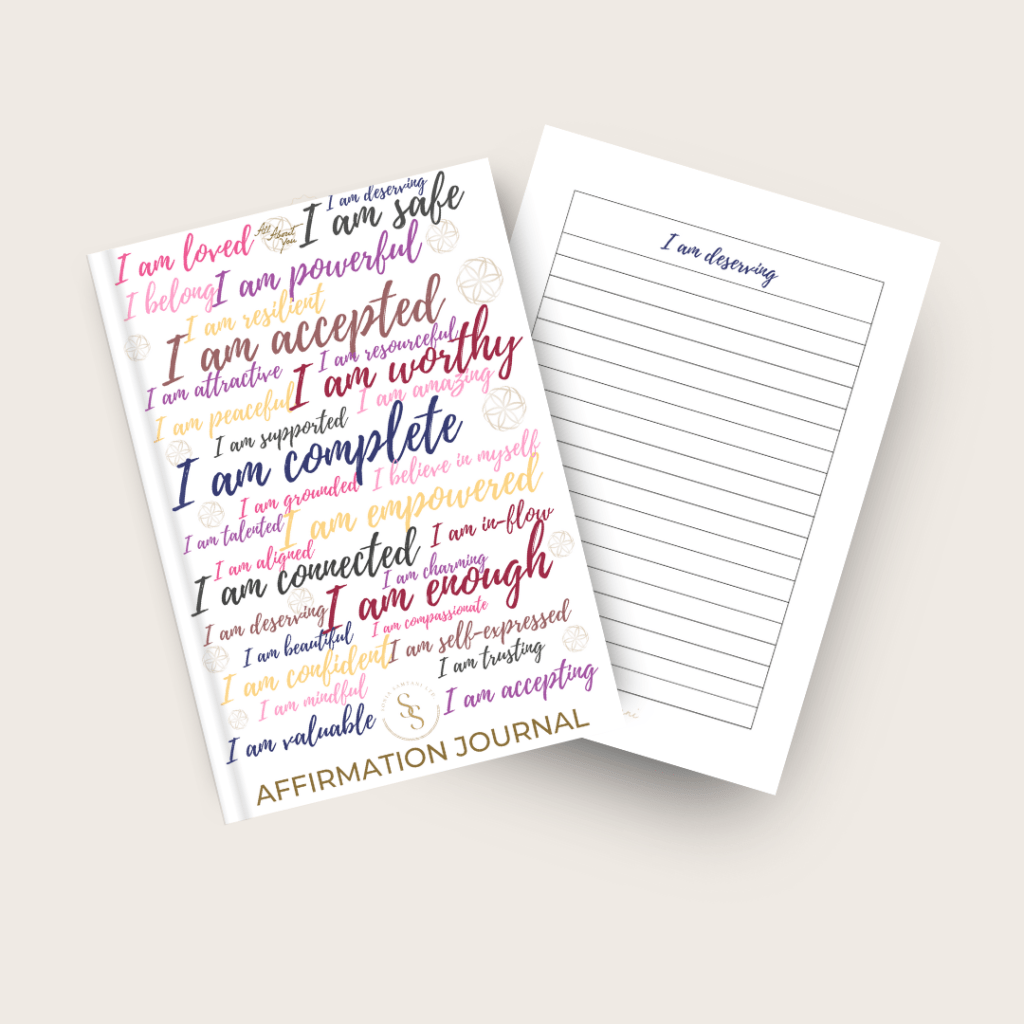 I am deserving
I am loved
All About You
I am safe
I belong
I am powerful
I am resilient
I am accepted
I am resourceful
I am attractive
I am worthy
I am peaceful
I am amazing
I am supported
I am complete
I believe in myself
I am grounded
I am empowered
I am talented
I am in-flow
I am aligned
I am connected
I am charming
I am enough
I am deserving
I am compassionate
I am beautiful
I am self-expressed
I am confident
I am trusting
I am mindful
I am accepting
I am valuable
SS
AFFIRMATION JOURNAL
I am deserving